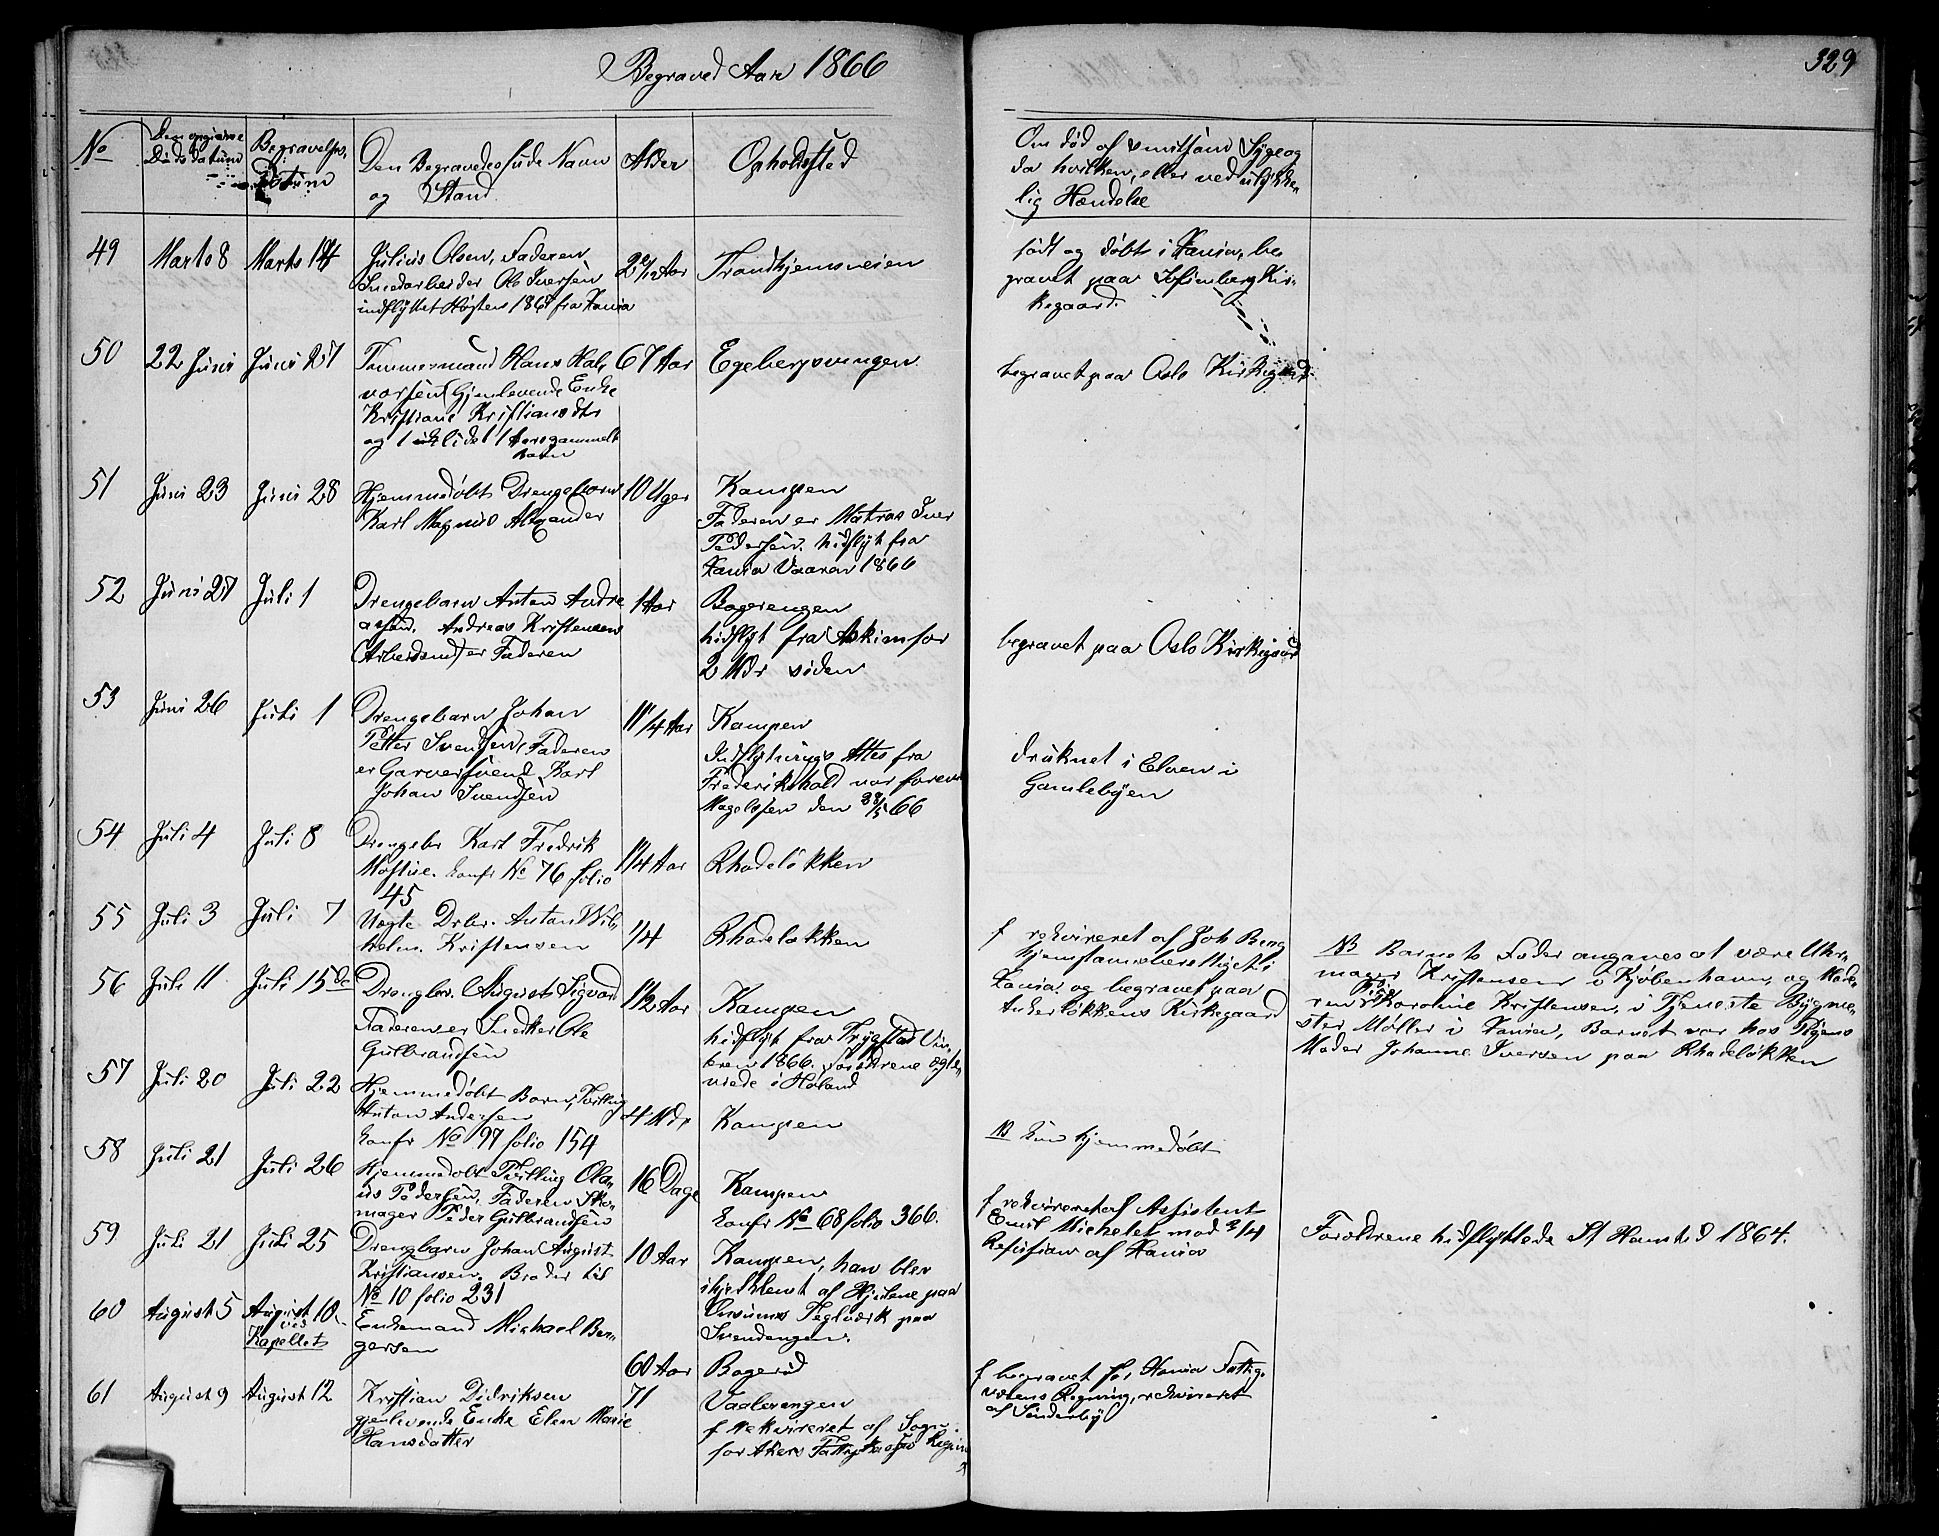 Begraved Aar 1866
329
No
Den opgivne
Døds datum
Begravelses
Datum
Den Begravedes fulde Navn
og Stand
Alder
Opholdssted
Om død af smitsom Syge og
da hvilken, eller ved ulykke-
lig Hændelse
49 Marts 8 Marts 14 Julius Olsen, Faderen
Smedarbeider Ole Iversen
indflyttet Høsten 1864 fra Xania
Aar Trondhjemsveien
født og døbt i Xania, be
gravet paa Sofienberg Kir-
kegaard.
50 22 Juni Juni 27 Tømmermand Hans Hal-
vorsen (Gjenlevende Enke
Kristiane Kristiansdtr
og 1 lidet 1 Aars gammelt
Barn
67 Aar Egebergsvingen
begravet paa Oslo Kirkegaard.
51 Juni 23 Juni 28 Hjemmedøbt Drengebarn
Karl Magnus Alexander
10 Uger Kampen
Faderen er Matros Iver
Pedersen. hidflyt fra
Xania Vaaren 1866
52 Juni 27 Juli 1 Drengebarn Anton Andre
asen. Andreas Kristensen
(Arbeidsmd) er Faderen
1 Aar Bogerengen
hidflyt fra Askim for
2 Mdr siden
begravet paa Oslo Kirkegaard
53 Juni 26 Juli 1 Drengebarn Johan
Petter Svendsen, Faderen
er Garversvend Karl
Johan Svendsen
1 1/4 Aar Kampen
Indflytnings Attes fra
Frederikshald var forevi
Magelssen den 66
druknet i Elven i
Gamlebyen
54 Juli 4 Juli 8 Drengebr Karl Fredrik
Mostue. konfr No 76 folio
45
1 1/4 Aar Rhodeløkken
55 Juli 3 Juli 7 Uægte Drbr. Anton Wil-
helm Kristensen
1/4 Rhodeløkken
f rekvireret af Joh Berg
hjemstavnsberettiget i
Xania. og begravet paa
Ankerløkkens Kirkegaard
NB Barnets Fader angaves at være Uhr-
mager Kristensen i Kjøbenhavn, og Mode-
ren Pige Karoline Kristensen, i Tjeneste Bygme-
ster Møller i Xania, Barnet var hos Pigens
Moder Johanne Iversen paa Rhodeløkken
56 Juli 11 Juli 15de Drengbr. August Sigvard
Faderen er Snedker Ole
Gulbrandsen
1 1/2 Aar Kampen
hidflyt fra Trygstad Vin-
teren 1866. Forældrene ægte-
viede i Høland
57 Juli 20 Juli 22 Hjemmedøbt Barn, Tvilling
Anton Andersen
konfr No 97 folio 154
4 Mdr Kampen
NB kun hjemmedøbt
58 Juli 21 Juli 26 Hjemmedøbt Tvilling Ola-
us Pedersen, Faderen Sko-
mager Peder Gulbrandsen
16 Dage Kampen
konfr No 68 folio 366.
f rekvireret af Assistent
Emil Michelet mod 3/4
Refusion af Xania
59 Juli 21 Juli 25 Drengbarn Johan August
Kristiansen. Broder til
No 10 folio 231
10 Aar Kampen, han blev
ihjelklemt af Hjulene paa
Ovsums Teglværk paa
Svendengen.
Forældrene hidflyttede St Hanstid 1864.
60 August 5 August 10
ved
Kapellet
Enkemand Michael Ber-
gersen
60 Aar Bogerud
f begravet for Xania Fattig-
væsens Regning, rekvireret
af Sønderby
61 August 9 August 12 Kristian Didriksen
gjenlevende Enke Elen Marie
Hansdatter
71 Vaalerengen
f Rekvireret af Sogn
for Akers Fattigkasses Regning